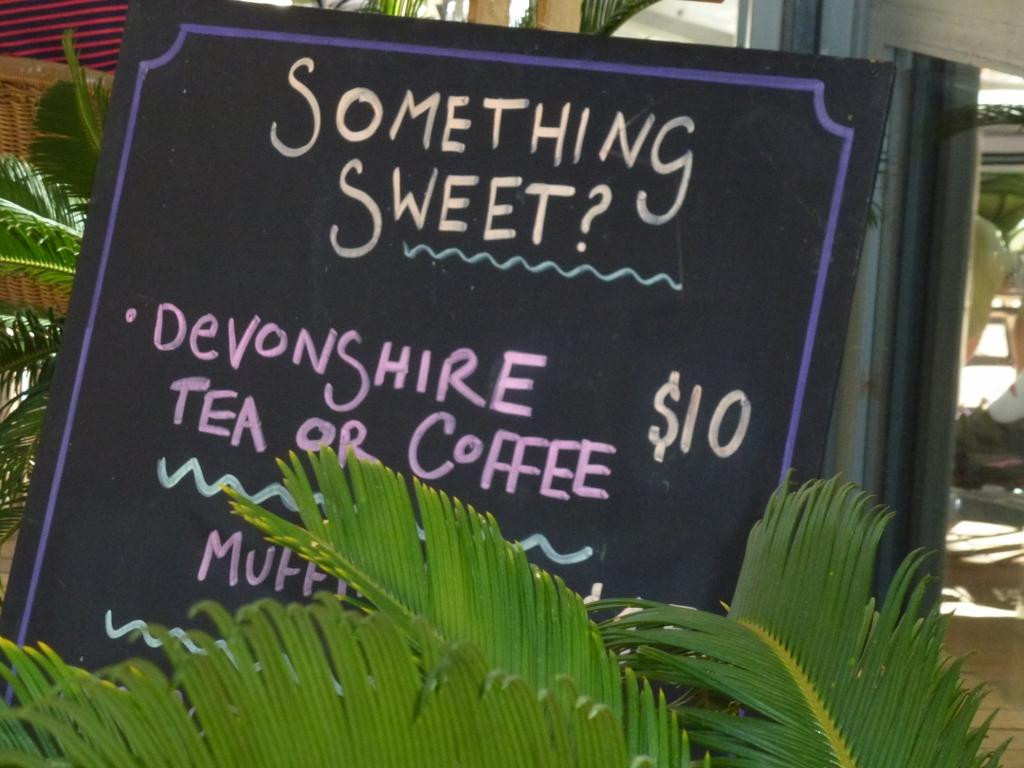 SOMETHING
SWEET?
• DEVONSHIRE
TEA OR COFFEE $10